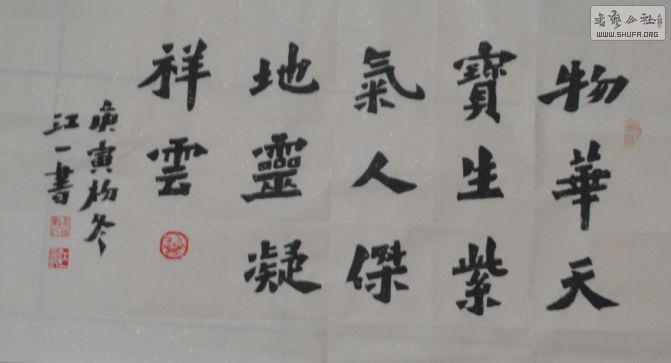 物華天
寶生紫
氣人傑
地靈凝
祥雲
庚寅初冬
江一書
书艺公社
WWW.SHUFA.ORG